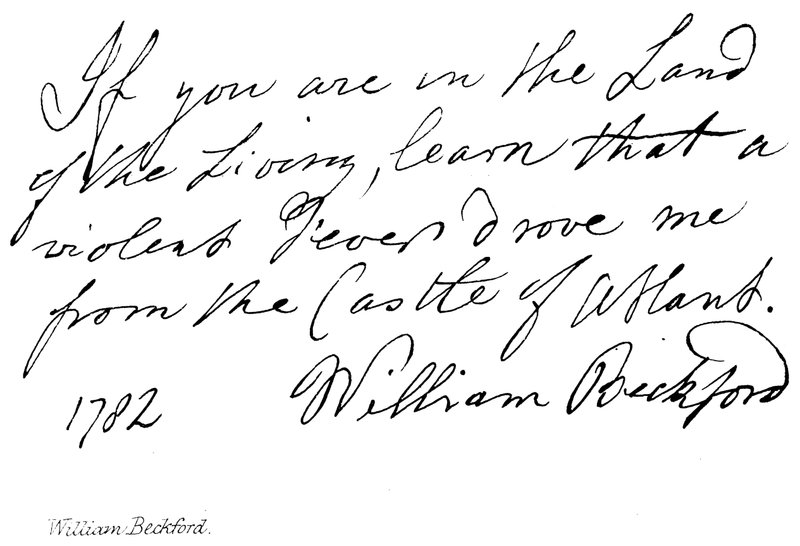 If you are in the Land
of the Living, learn that a
violent Fever drove me
from the Castle of Atlant.
William Beckford
1782
William Beckford.